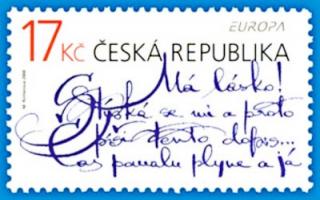 17 Kč ČESKÁ REPUBLIKA
EUROPA
Má lásko!
Stýská se mi a proto
Píši tento dopis...
čas pomalu plyne a já